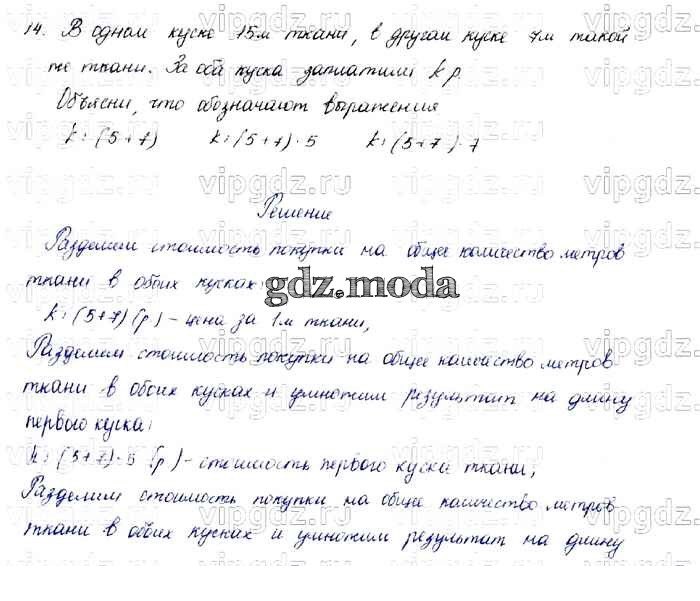 14. В одном куске 15м ткани, в другом куске 7м такой
же ткани. За оба куска заплатили k р.
Объясни, что обозначают выражения
k : (5+7) k : (5+7) · 5 k : (5+7) · 7
Решение
Разделим стоимость покупки на общее количество метров
ткани в обоих кусках:
gdz.moda
k : (5+7) (р) – цена за 1м ткани;
Разделим стоимость покупки на общее количество метров
ткани в обоих кусках и умножим результат на длину
первого куска:
k : (5+7) · 5 (р) – стоимость первого куска ткани;
Разделим стоимость покупки на общее количество метров
ткани в обоих кусках и умножим результат на длину